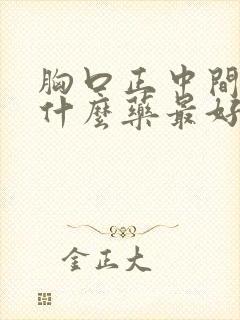 胸口正中間
什麼藥最好
金正大